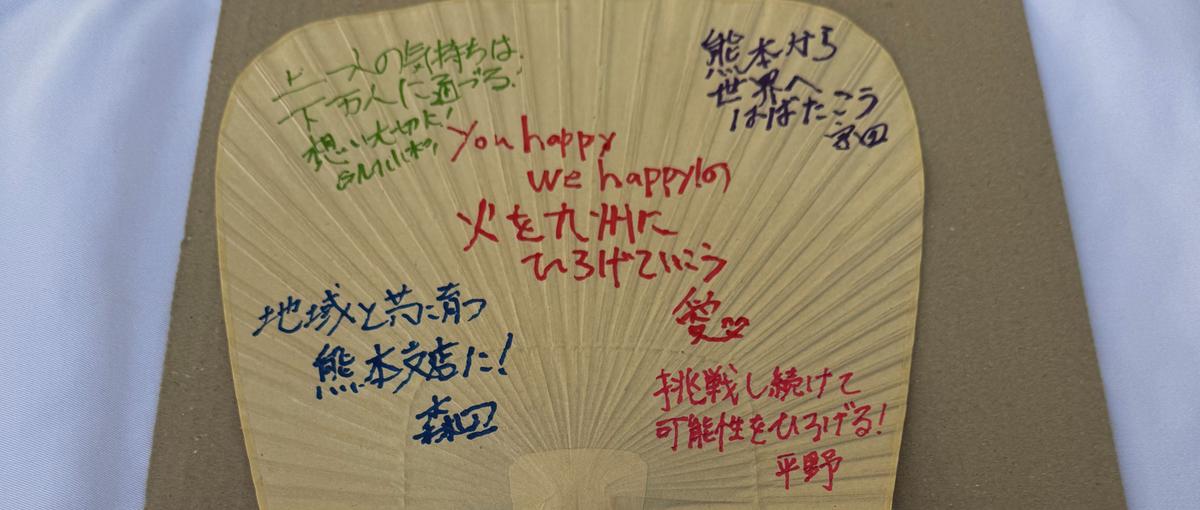 上一人の気持ちは
下万人に通づる!
想い大切に!
熊本から
世界へ
はばたこう
You happy
we happy!の
火を九州に
ひろげていこう
愛
地域と共に育つ
熊本支店に!
森田
挑戦し続けて
可能性をひろげる!
平野